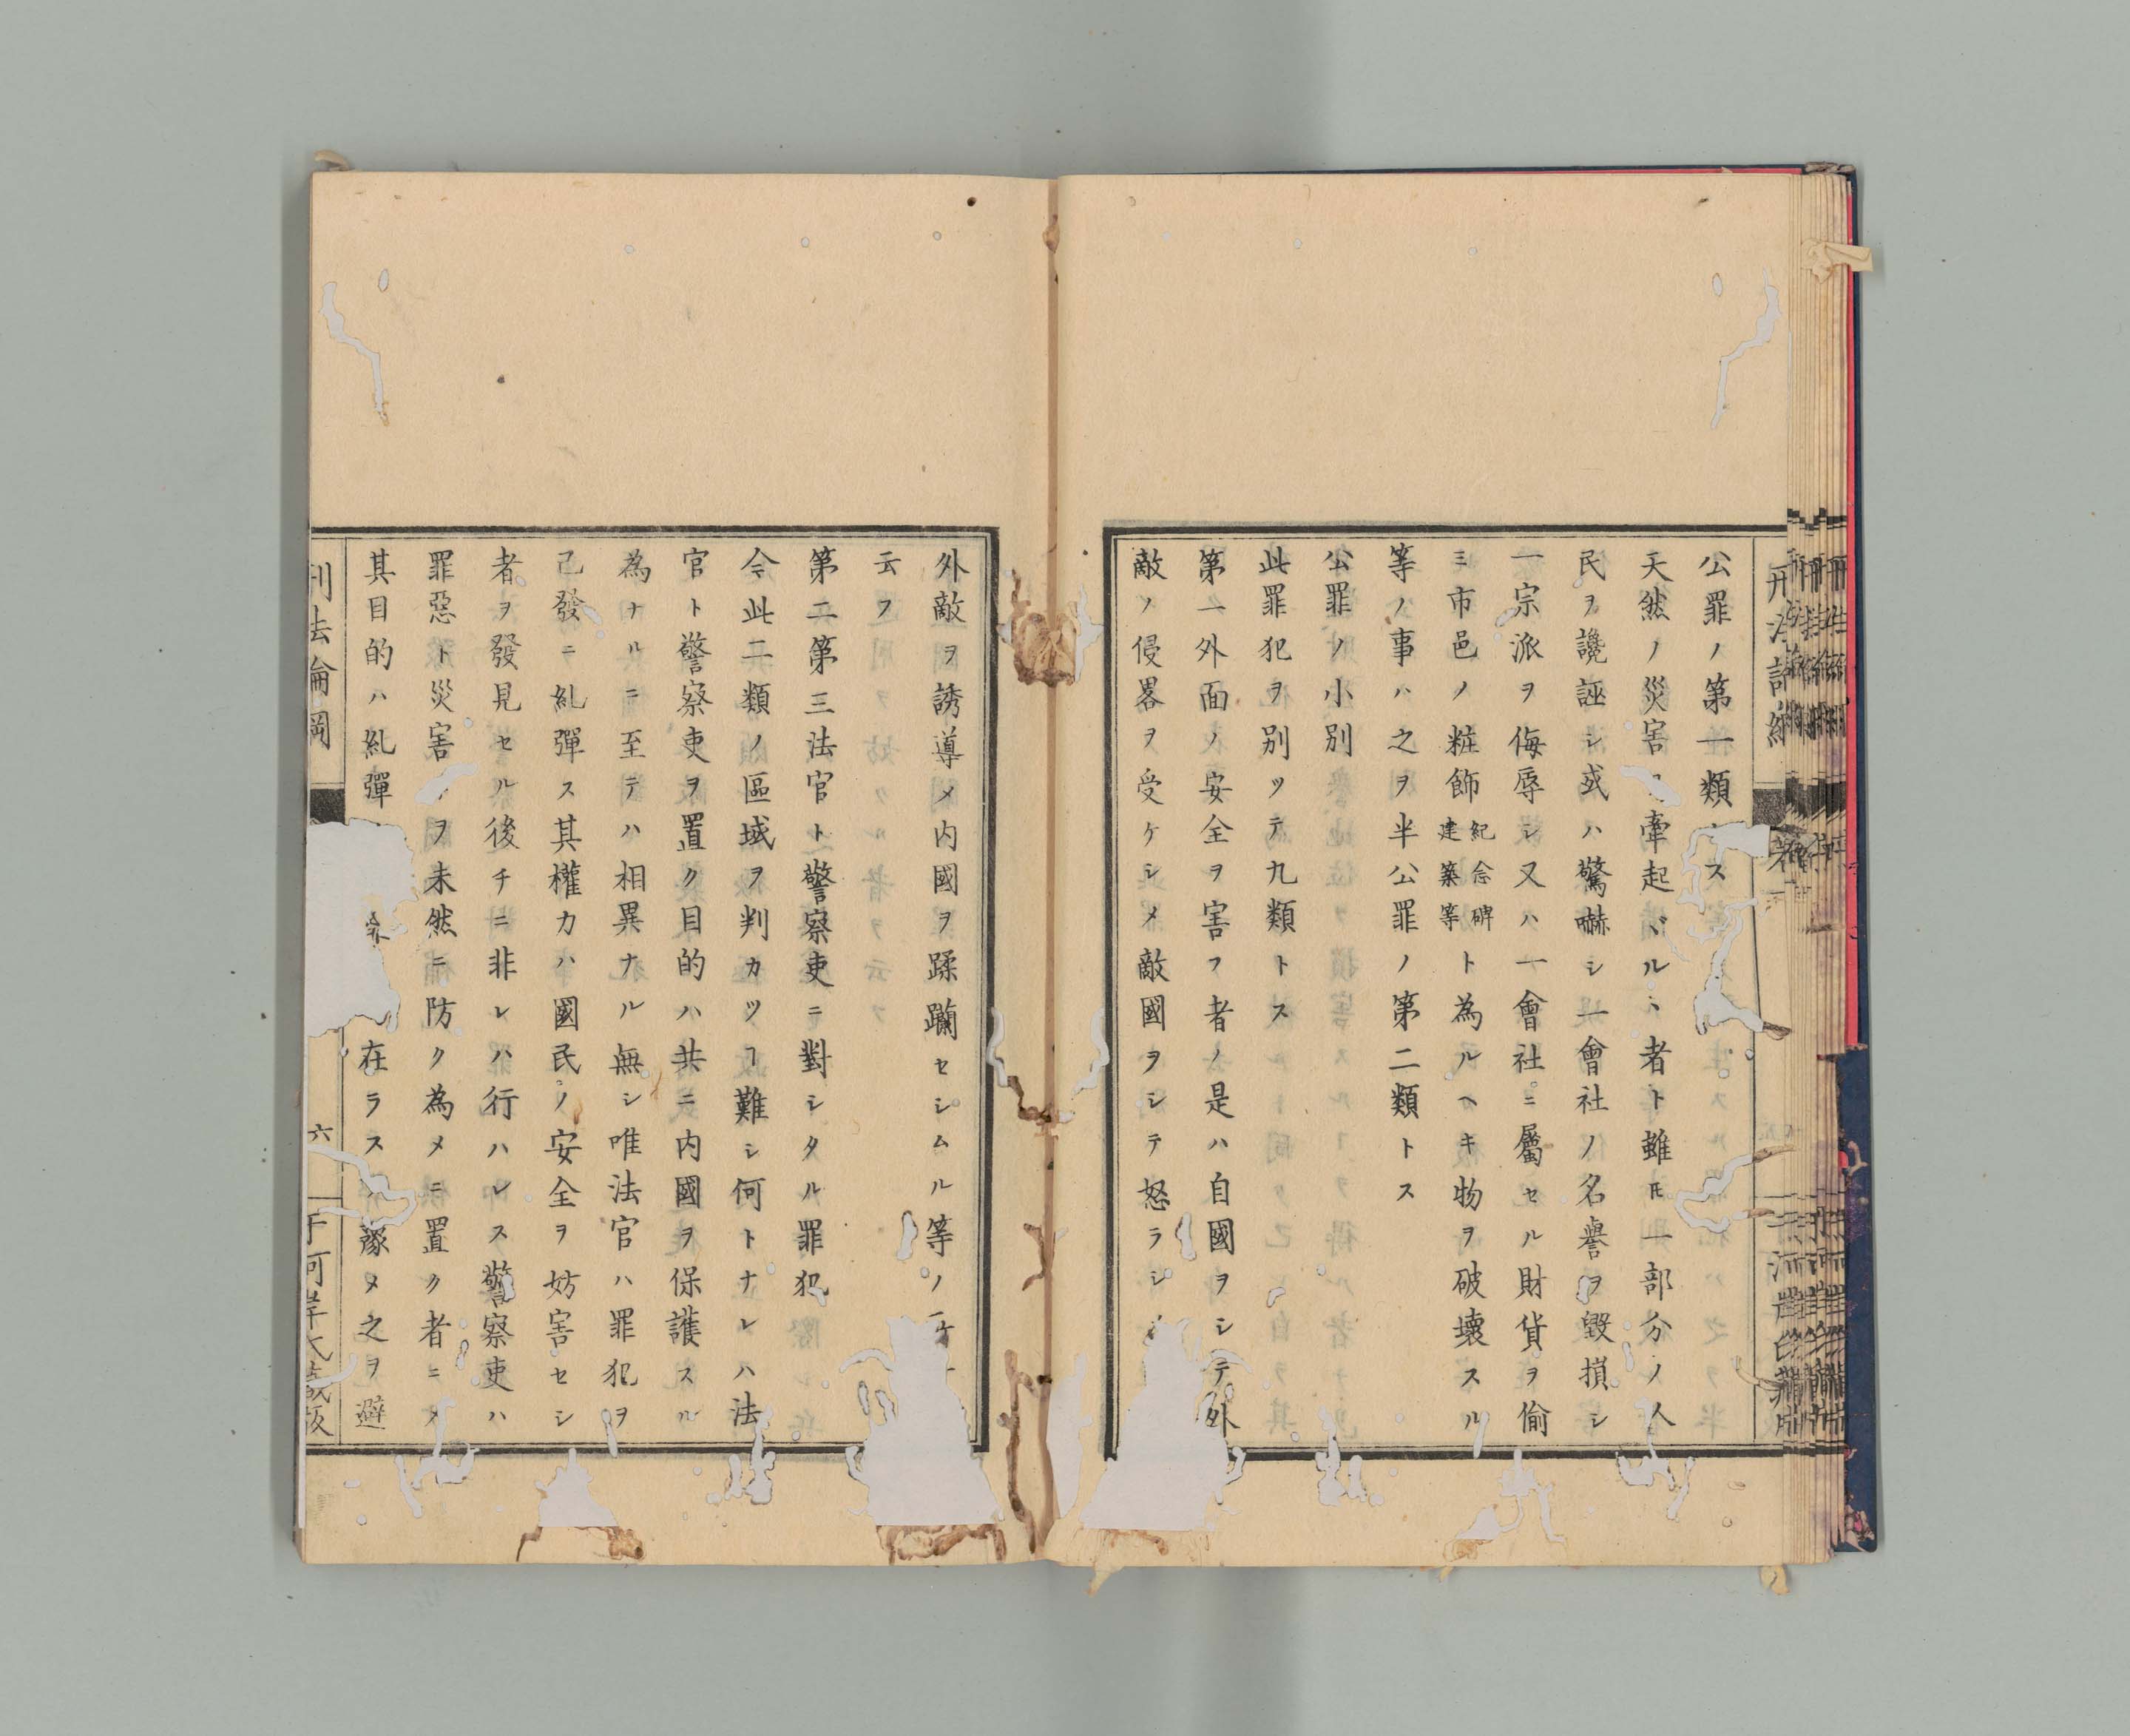 公罪ノ第一類 ス
天然ノ災害 牽起 ルヽ者ト雖𪜈一部分ノ人
民ヲ讒誣シ或ハ驚嚇シ一會社ノ名譽ヲ毀損シ
一宗派ヲ侮辱シ又ハ一會社ニ屬セル財貨ヲ偷
ミ市邑ノ粧飾紀念碑建築等ト為ルヘキ物ヲ破壊スル
等ノ事ハ之ヲ半公罪ノ第二類トス
公罪ノ小別
此罪犯ヲ別ツテ九類トス
第一外面ノ安全ヲ害フ者ノ是ハ自國ヲシテ外
敵ノ侵畧ヲ受ケシメ敵國ヲシテ怒ラシ
外敵ヲ誘導メ内國ヲ蹂躪セシムル等ノ
云フ
第二第三法官ト警察吏ニ對シタル罪犯
今此二類ノ區域ヲ判カツヿ難シ何トナレハ法
官ト警察吏ヲ置ク目的ハ共ニ内國ヲ保護スル
為ナルニ至テハ相異ナル無シ唯法官ハ罪犯ヲ
己發ニ糺彈ス其權力ハ國民ノ安全ヲ妨害セシ
者ヲ發見セル後チニ非レハ行ハレス警察吏ハ
罪惡ト災害 ヲ未然ニ防ク為メニ置ク者ニ
其目的ハ糺彈 在ラス 豫メ之ヲ避
刑法論綱
六
河岸氏蔵版